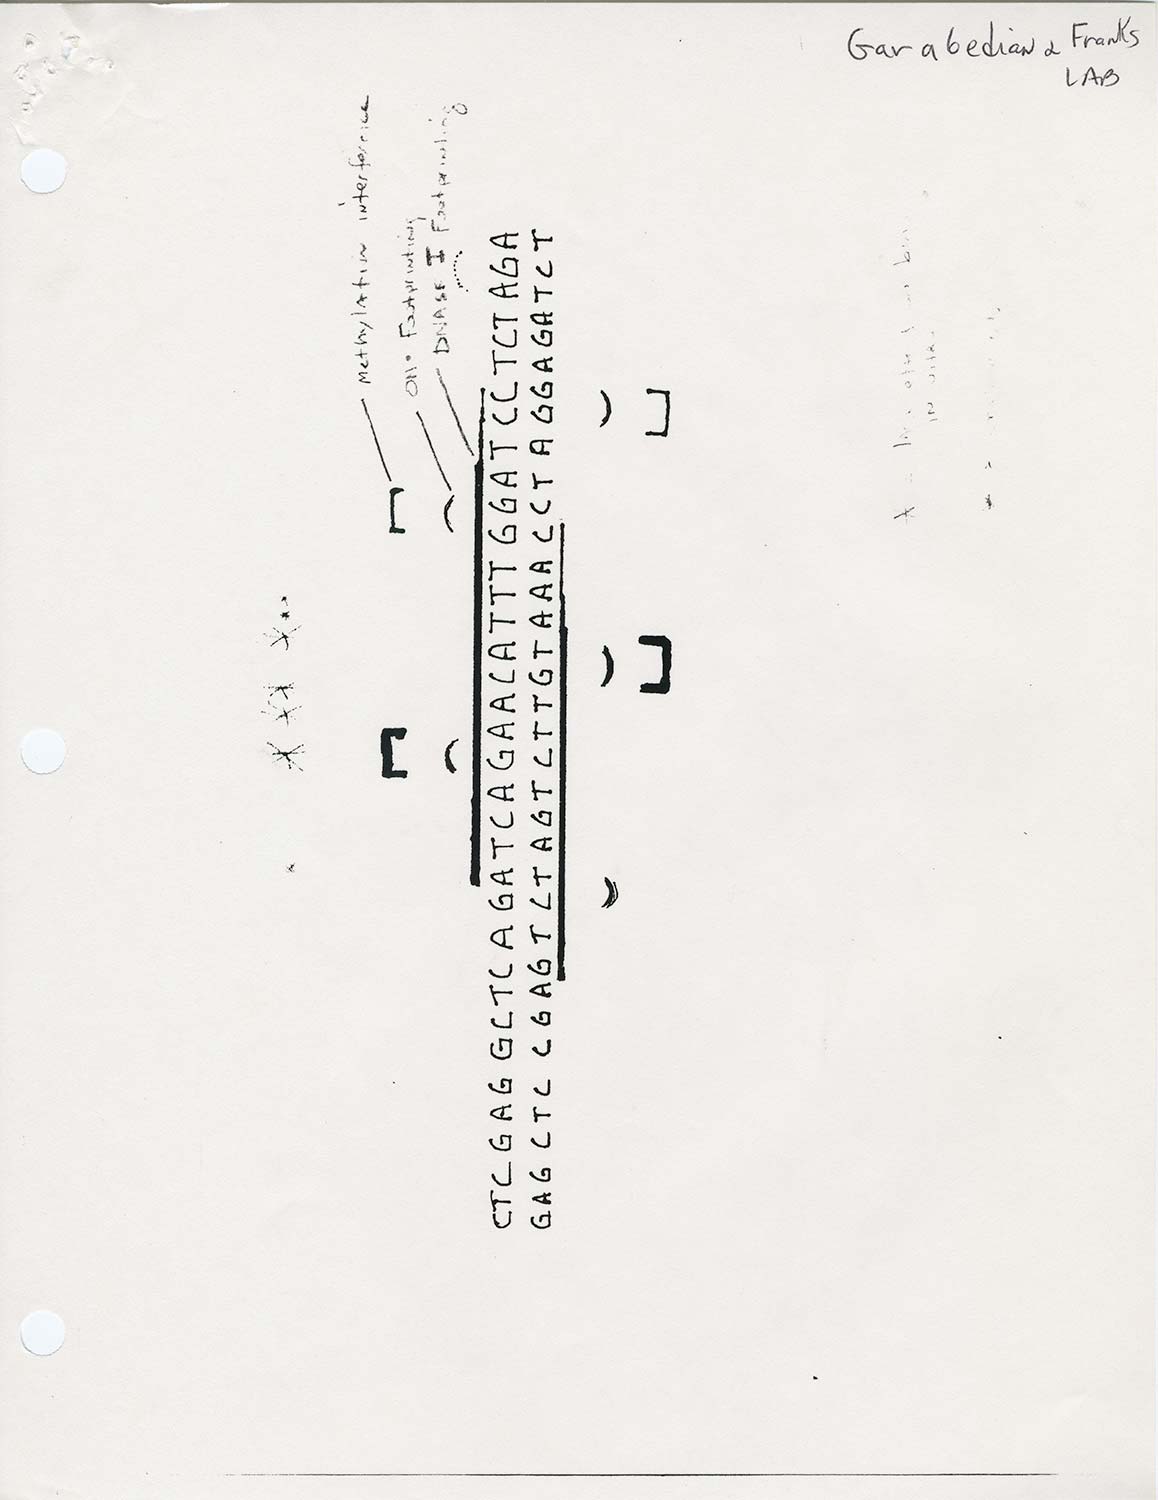 Garabedian & Franks
LAB
Methylation interference
OH• Footprinting
DNASE I Footprinting
CTCGAG GCTC AGATCAGAACATTTGGATCCTCTAGA
GAGCTC CGAGTCTAGTCTTGTAAACCTAGGAGATCT